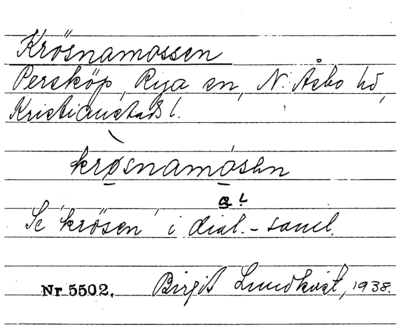 Krösnamossen
Persköp, Rya sn, N. Åsbo hd,
Kristianstads l.
krøsnamosen
a!
Se 'krösen' i dial.-saml.
Nr 5502. Birgit Lundkvist, 1938.